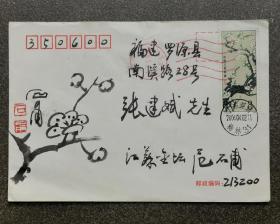 350600
福建罗源县
南溪路28号
张建斌先生
石甫
江苏金坛 范石甫
邮政编码：213200